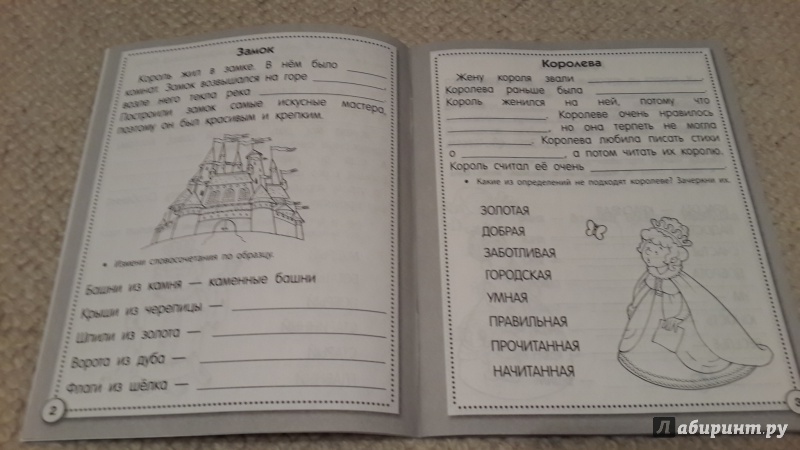 Замок
Король жил в замке. В нём было ______
комнат. Замок возвышался на горе ______,
возле него текла река ______
Построили замок самые искусные мастера,
поэтому он был красивым и крепким.
• Измени словосочетания по образцу.
Башни из камня — каменные башни
Крыши из черепицы — ______
Шпили из золота — ______
Ворота из дуба — ______
Флаги из шёлка — ______
2
Королева
Жену короля звали ______.
Королева раньше была ______.
Король женился на ней, потому что
______. Королеве очень нравилось
______, но она терпеть не могла
______. Королева любила писать стихи
о ______, а потом читать их королю.
Король считал её очень ______.
• Какие из определений не подходят королеве? Зачеркни их.
ЗОЛОТАЯ
ДОБРАЯ
ЗАБОТЛИВАЯ
ГОРОДСКАЯ
УМНАЯ
ПРАВИЛЬНАЯ
ПРОЧИТАННАЯ
НАЧИТАННАЯ
3
Лабиринт.ру